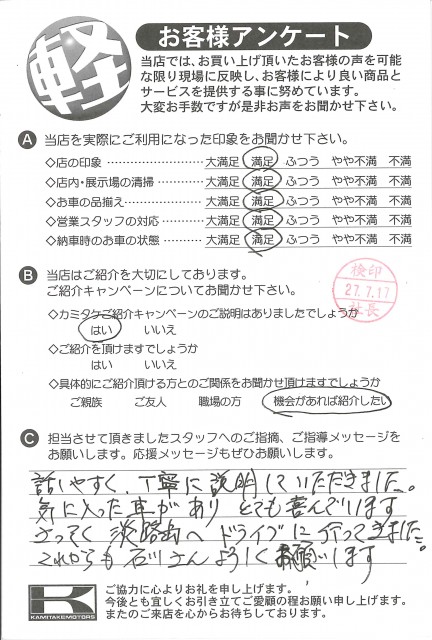 軽
お客様アンケート
当店では、お買い上げ頂いたお客様の声を可能
な限り現場に反映し、お客様により良い商品と
サービスを提供する事に努めています。
大変お手数ですが是非お声をお聞かせ下さい。
A 当店を実際にご利用になった印象をお聞かせ下さい。
◇店の印象 大満足 満足 ふつう やや不満 不満
◇店内・展示場の清掃 大満足 満足 ふつう やや不満 不満
◇お車の品揃え 大満足 満足 ふつう やや不満 不満
◇営業スタッフの対応 大満足 満足 ふつう やや不満 不満
◇納車時のお車の状態 大満足 満足 ふつう やや不満 不満
B 当店はご紹介を大切にしてあります。
ご紹介キャンペーンについてお聞かせ下さい。
検印
27.7.17
社長
◇カミタケご紹介キャンペーンのご説明はありましたでしょうか
はい いいえ
◇ご紹介を頂けますでしょうか
はい いいえ
◇具体的にご紹介頂ける方とのご関係をお聞かせ頂けますでしょうか
ご親族 ご友人 職場の方 機会があれば紹介したい
C 担当させて頂きましたスタッフへのご指摘、ご指導メッセージを
お願いします。応援メッセージもぜひお願します。
話しやすく、丁寧に説明していただきました。
気に入った車があり とても喜んでいます
さっそく 淡路島へ ドライブに 行ってきました。
これからも 石川さん よろしく お願いします
K
KAMITAKEMOTORS
ご協力に心よりお礼を申し上げます。
今後とも宜しくお引き立てご愛顧の程お願い申し上げます。
またのご来店を心からお待ちしております。